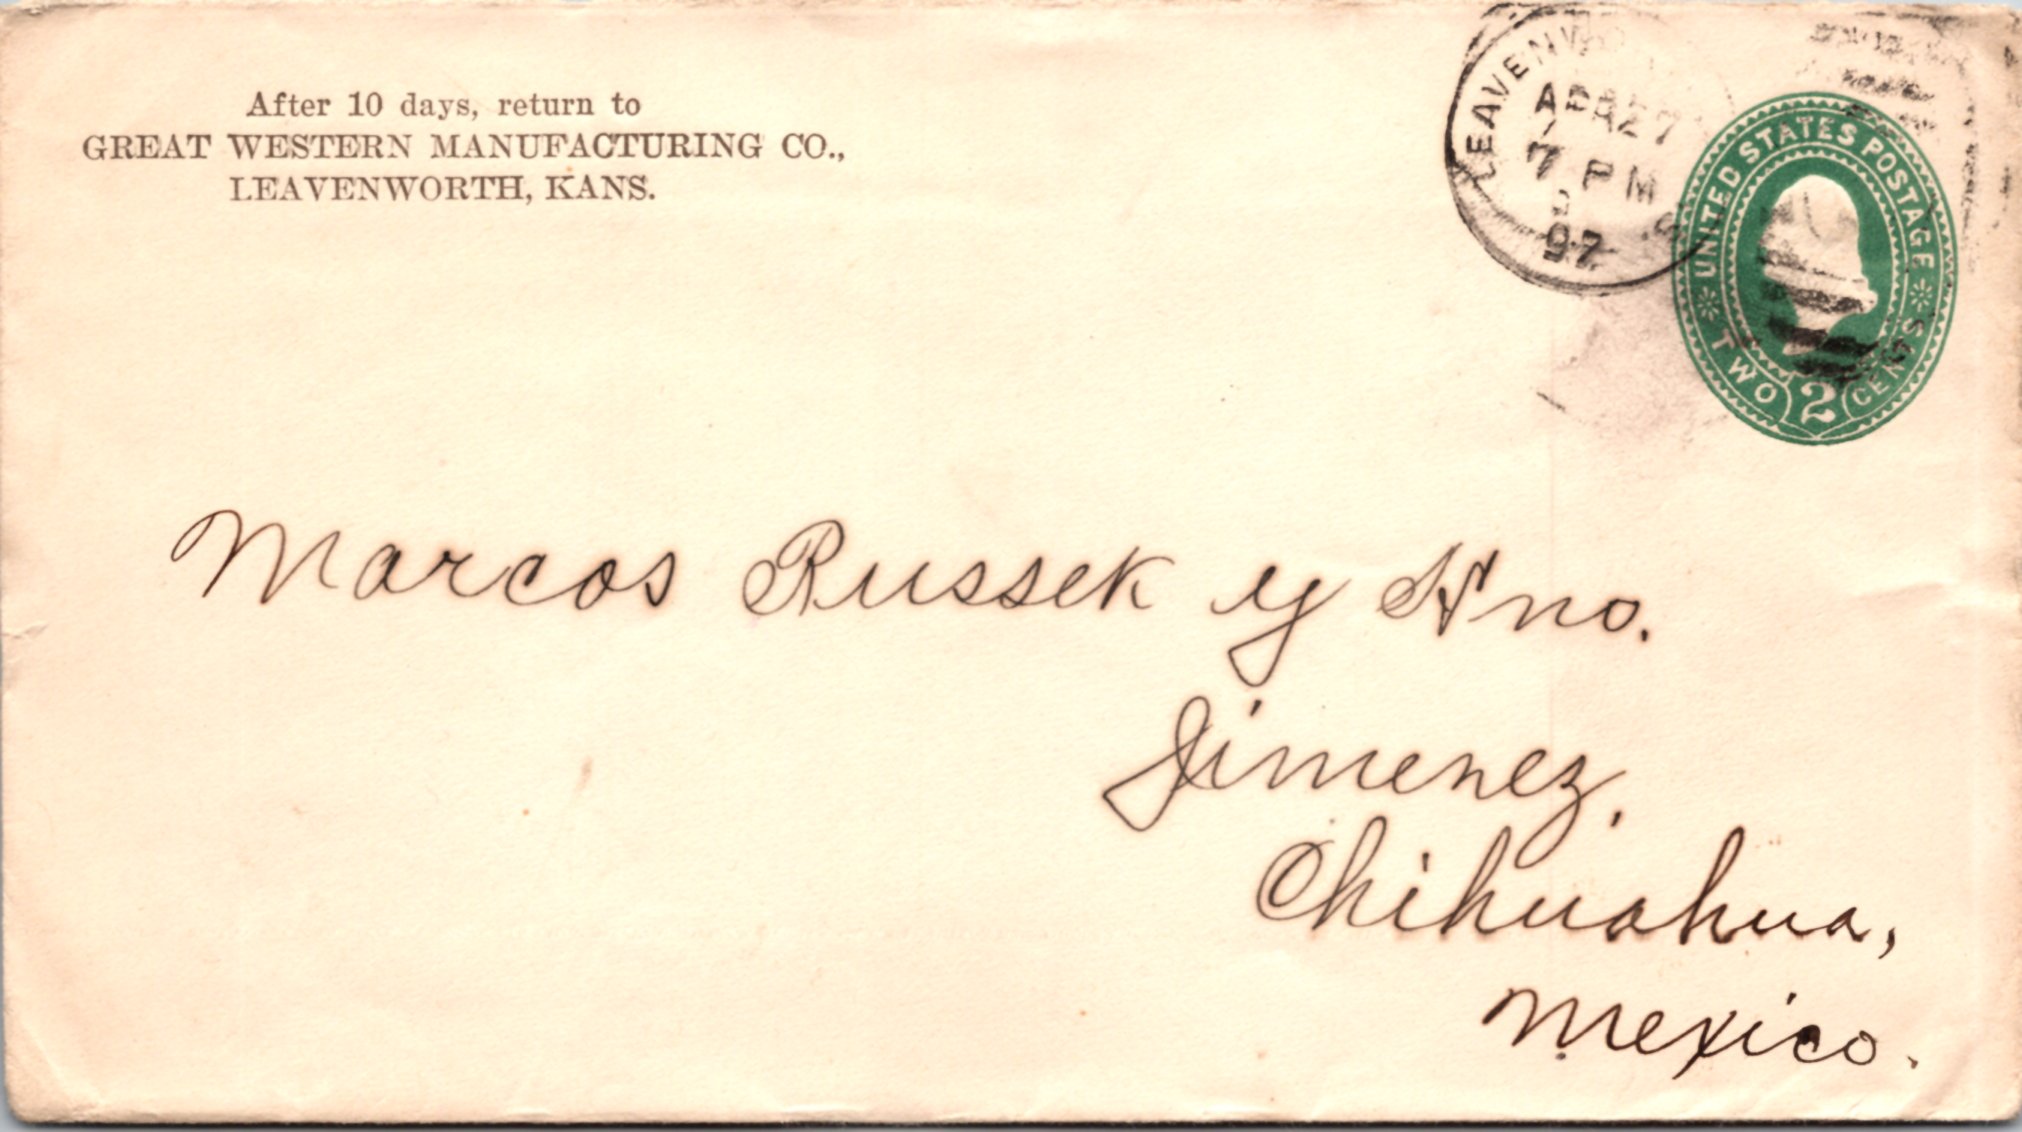 After 10 days, return to
GREAT WESTERN MANUFACTURING CO.,
LEAVENWORTH, KANS.
LEAVENW
APR 27
7 PM
97
UNITED STATES POSTAGE
TWO 2 CENTS
Marcos Russek y Hno.
Jimenez,
Chihuahua,
Mexico.